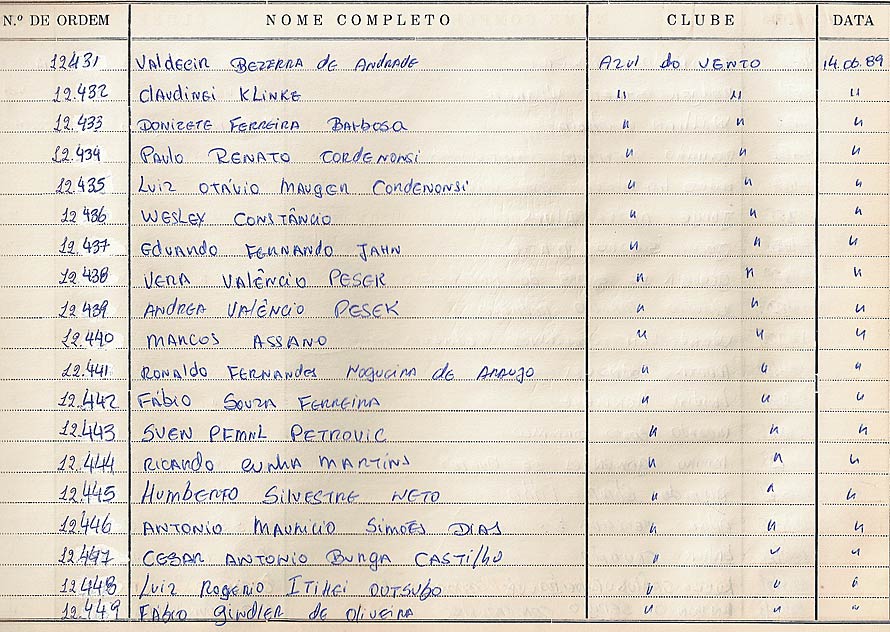 N.º DE ORDEM NOME COMPLETO CLUBE DATA
12431 Valdecir Bezerra de Andrade Azul do Vento 14.06.89
12.432 Claudinei Klinke " " "
12.433 Donizete Ferreira Barbosa " " "
12.434 Paulo Renato Cordenonsi " " "
12.435 Luiz Otávio Mauger Cordenonsi " " "
12 436 Wesley Constâncio " " "
12.437 Eduardo Fernando Jahn " " "
12.438 Vera Valêncio Pesek " " "
12.439 Andrea Valêncio Pesek " " "
12.440 Marcos Assano " " "
12.441 Ronaldo Fernandes Nogueira de Araujo " " "
12.442 Fábio Souza Ferreira " " "
12.443 Sven Petrovic " " "
12.444 Ricardo Cunha Martins " " "
12.445 Humberto Silvestre Neto " " "
12.446 Antonio Mauricio Simões Dias " " "
12.447 Cesar Antonio Castilho " " "
12.448 Luiz Rogério Outsubo " " "
12.449 Fábio de Oliveira " " "